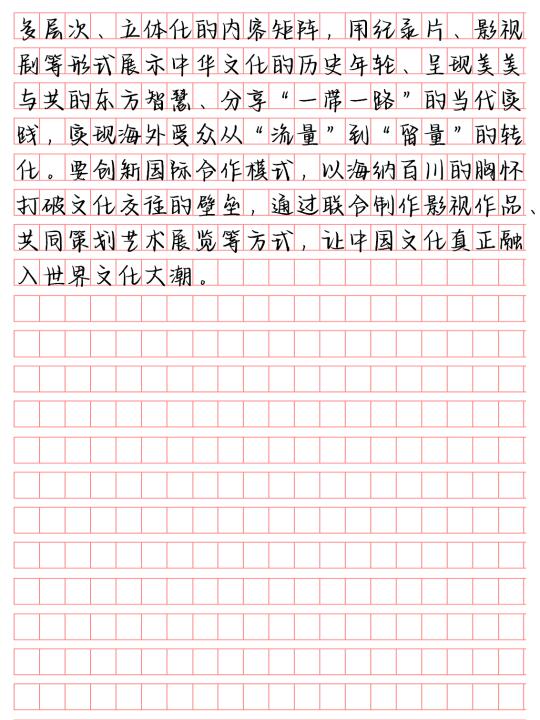 多层次、立体化的内容矩阵，用纪录片、影视
剧等形式展示中华文化的历史年轮、呈现美美
与共的东方智慧、分享“一带一路”的当代实
践，实现海外受众从“流量”到“留量”的转
化。要创新国际合作模式，以海纳百川的胸怀
打破文化交往的壁垒，通过联合制作影视作品、
共同策划艺术展览等方式，让中国文化真正融
入世界文化大潮。